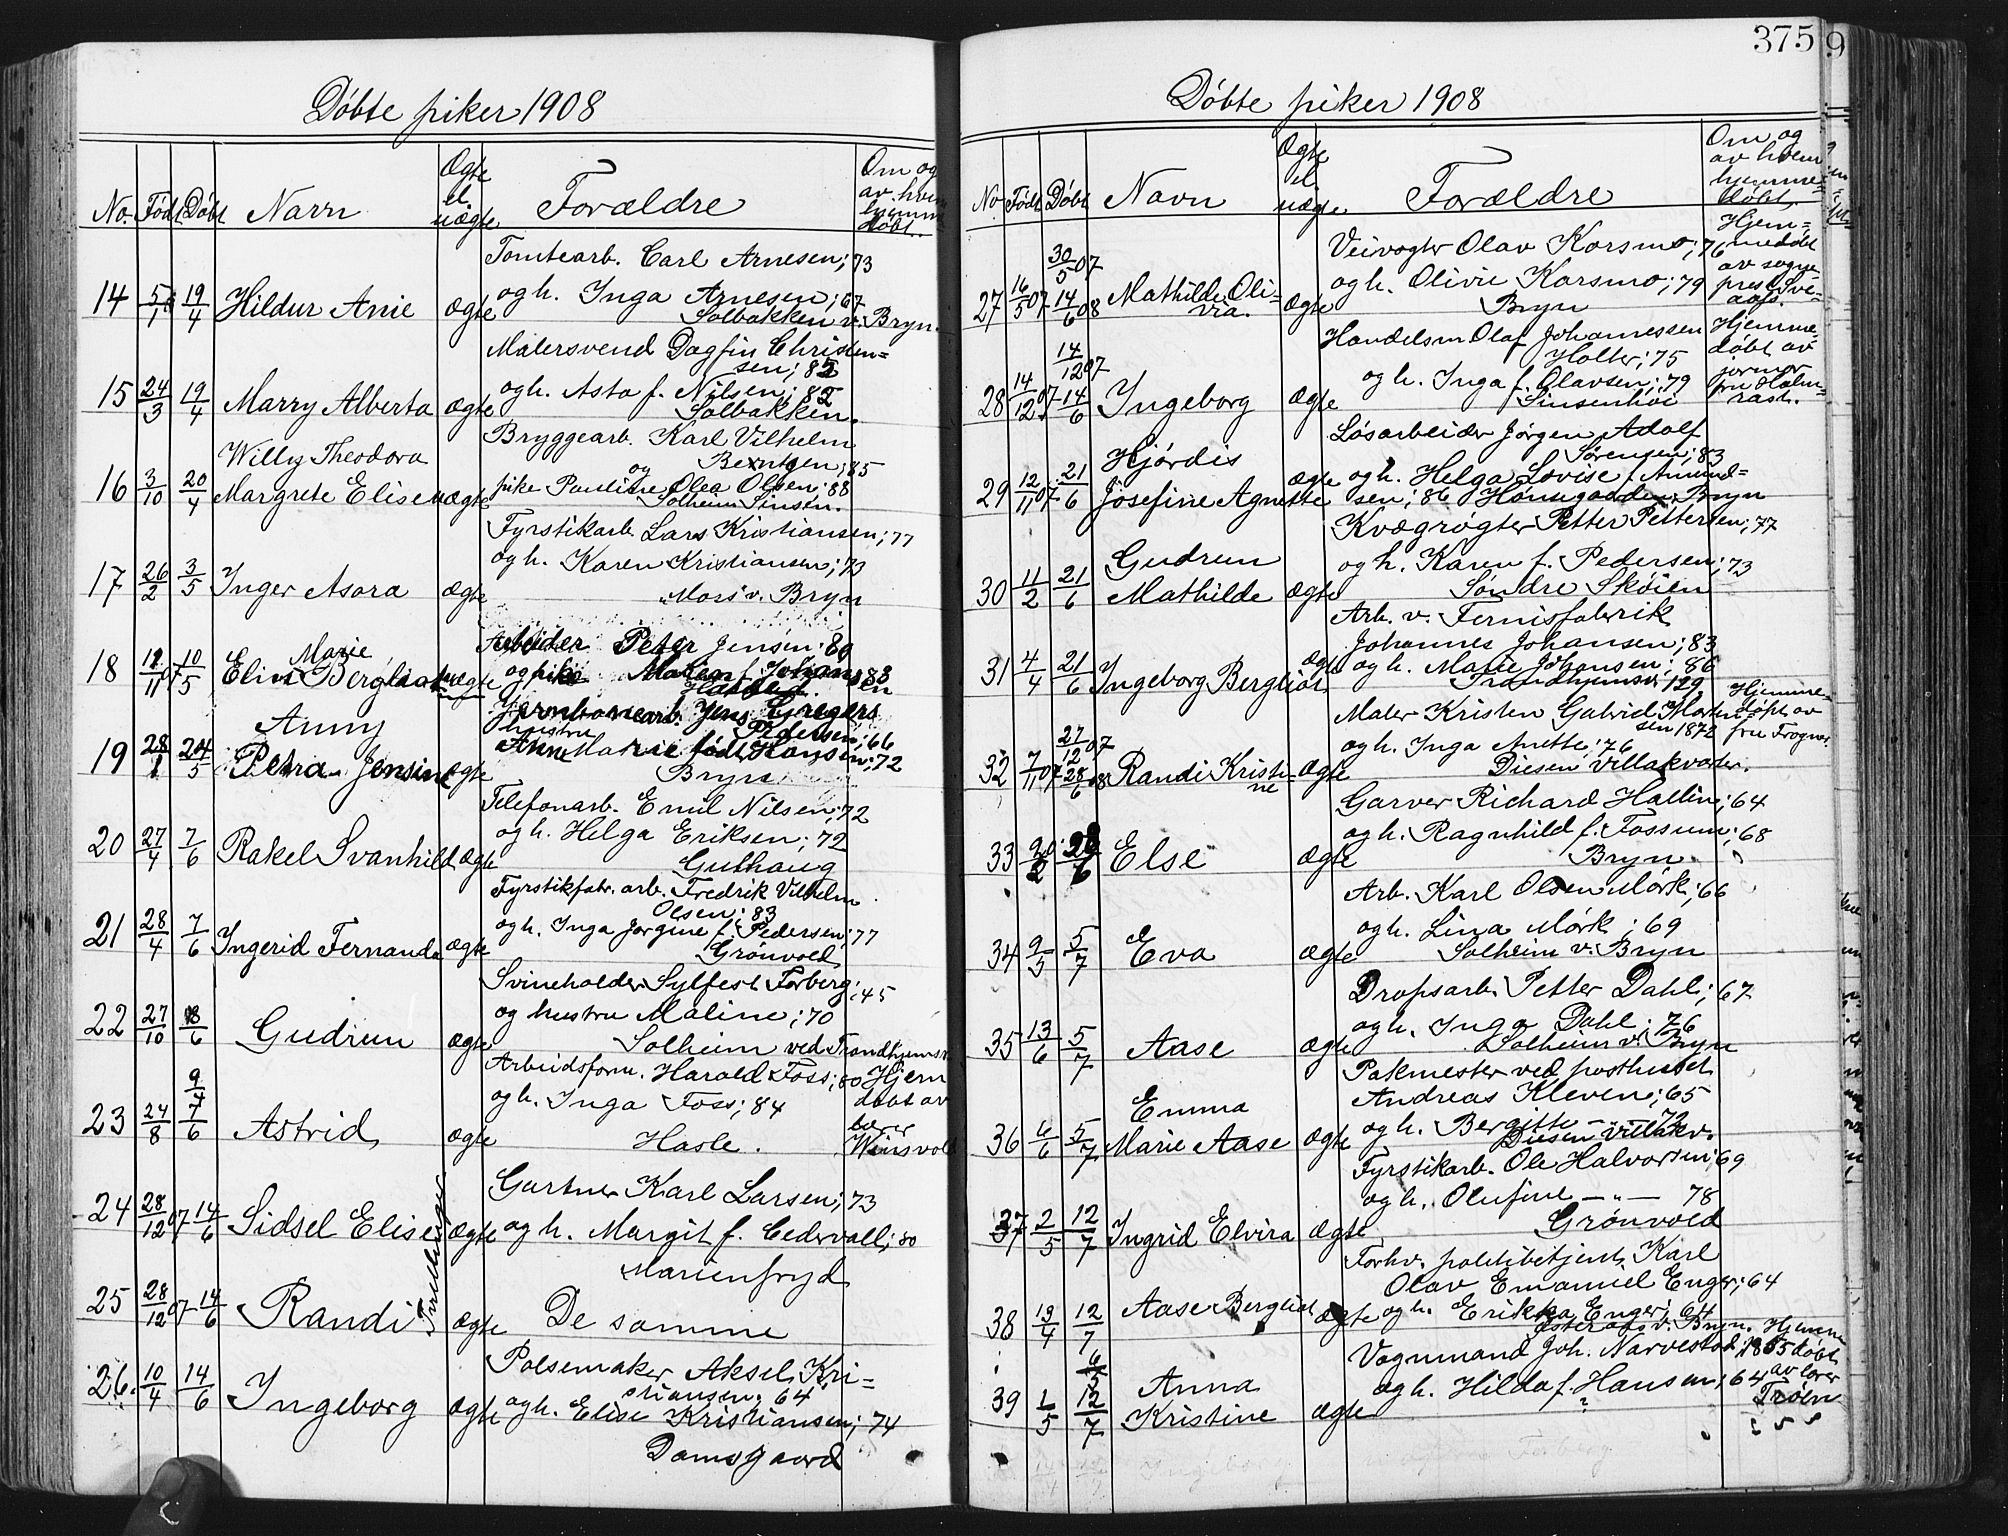 Døbte piker 1908
No. Født Døbt Navn Ægte el. uægte Forældre Om og av hvem hjemmedøbt.
Tomtearb. Carl Arnesen; 73
14 5/1 19/4 Hildur Anie ægte og h. Inga Arnesen; 67
Solbakken v. Bryn.
Malersvend Dagfin Christen=
sen; 82
15 24/3 19/4 Marry Alberta ægte og h. Asta f. Nilsen; 82
Solbakken.
Willy Theodora Bryggearb. Karl Vilhelm
Berntsen; 85
16 3/10 20/4 Margrete Elise uægte og pike Pauline Olea Olsen; 88
Solheim Sinsen.
Fyrstikarb. Lars Kristiansen; 77
17 26/2 3/5 Inger Asora ægte og h. Karen Kristiansen; 73
Mors v. Bryn
Arbeider Peter Jensen; 80
18 /11 07 10/5 Elin Marie Bergliot uægte og pike f. Johansen 83
Jernbanearb. Jens Gregers
Pedersen; 66
Anny hustru
19 28/1 24/5 Petra Jensine ægte Anne Marie født Hansen; 72
Bryn
Telefonarb. Emil Nilsen; 72
20 27/4 7/6 Rakel Svanhild ægte og h. Helga Eriksen; 72
Guthaug
Fyrstikfabr. arb. Fredrik Vilhelm
Olsen; 83
21 28/4 7/6 Ingerid Fernanda ægte og h. Inga Jørgine f. Pedersen; 77
Grønvold
Svineholder Sylfest Forberg; 45
22 27/10 8/6 Gudrun ægte og hustru Maline; 70
Solheim ved Trondhjemsv.
Arbeidsform. Harald Foss; 80 Hjem
9/4 og h. Inga Foss; 84 døbt av
23 24/8 7/6 Astrid ægte Hasle. lærer Winsvold
Gartner Karl Larsen; 73
24 28/12 07 14/6 Sidsel Elise ægte og h. Margit f. Cedervall; 80
Marienfryd
Tvillinger
25 28/12 07 14/6 Randi ægte De samme
Pølsemaker Aksel Kri=
stiansen; 64
26. 10/4 14/6 Ingeborg ægte og h. Elise Kristiansen; 74
Damsgaard
375
Døbte piker 1908
No Født Døbt Navn Ægte el. uægte Forældre Om og av hvem hjemme=døbt.
Veivogter Olav Korsmo; 76 Hjem=
30/5 07 medøbt
27 16/5 07 14/6 08 Mathilde Oli=via. ægte og h. Olivie Korsmo; 79 av sogneprest Sve=aas.
Bryn
Handelsm Olaf Johannessen Hjemme=
14/12 07 Holter; 75 døbt av
28 14/12 07 14/6 Ingeborg ægte og h. Inga f. Olavsen; 79 jormor fru Halm=rast.
Sinsenhøi
Løsarbeider Jørgen Adolf
Hjørdis Sørensen; 83
29 12/11 07 21/6 Josefine Agnette ægte og h. Helga Lovise f. Amund=
sen; 86 Bryn
Kvægrøgter Petter Pettersen; 77
Gudrun og h. Karen f. Pedersen; 73
30 11/2 21/6 Mathilde ægte Søndre Skøien
Arb. v. Fernisfabrik
Johannes Johansen; 83
31 4/4 21/6 Ingeborg Bergliot ægte og h. Marie Johansen; 86
Trondhjemsv. 129
Maler Kristen Gabriel Morten=sen 1872 Hjemme=døbt av fru Frogner.
27/12 07 og h. Inga Anette; 76
32 7/11 07 28/6 08 Randi Kristine ægte Disen Villakvarter.
Garver Richard Hallin; 64
og h. Ragnhild f. Fossum; 68
33 20/2 28/6 Else ægte Bryn
Arb. Karl Olsen Mørk; 66
og h. Lina Mørk; 69
34 9/5 5/7 Eva ægte Solheim v. Bryn
Dropsarb. Petter Dahl; 67
og h. Inga Dahl; 76
35 13/6 5/7 Aase ægte Solheim v. Bryn
Pakmester ved posthuset
Andreas Kleven; 65
Emma og h. Bergitte — " — 72
36 6/6 5/7 Marie Aase ægte Disen Villakv.
Fyrstikarb. Ole Halvorsen; 69
og h. Olufine — " — 78
37 2/5 12/7 Ingrid Elvira ægte Grønvold
Forhv. politibetjent Karl
Olav Emanuel Enger; 64
38 19/4 12/7 Aase Bergliot ægte og h. Erikka Enger; 64
Østeraas v. Bryn.
Vognmand Joh. Narvestad; 1865 Hjemmedøbt
6/5 av lærer
Anna og h. Hilda f. Hansen; 64 Trøen
39 1/5 12/7 Kristine ægte ?